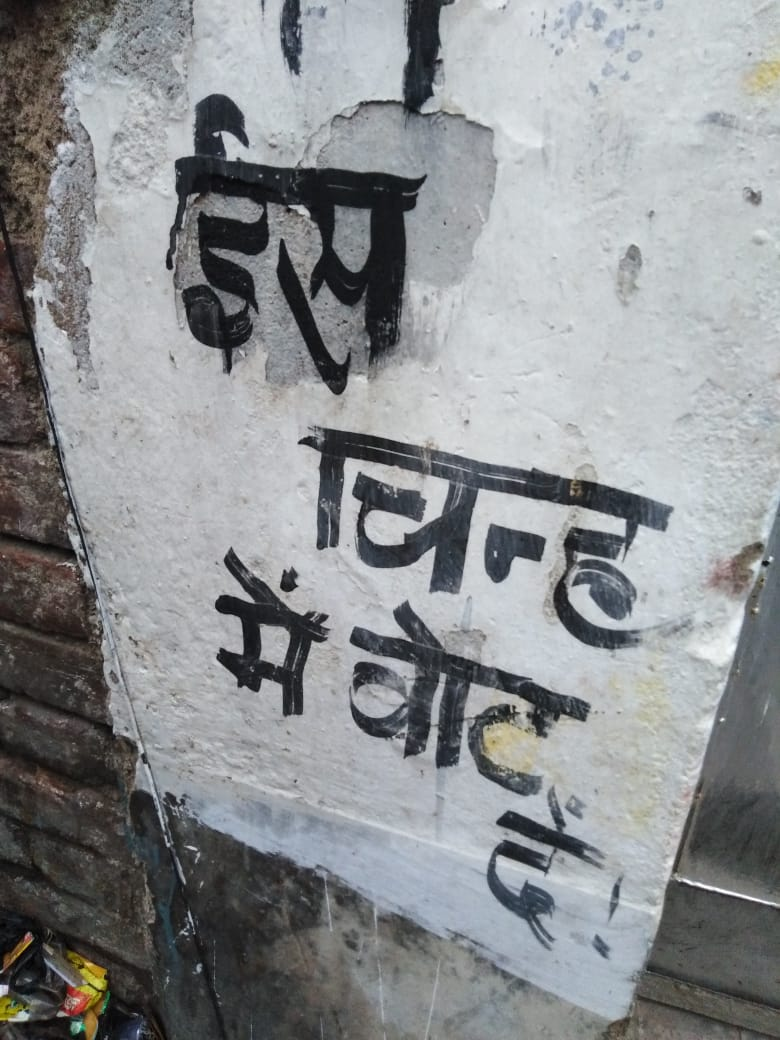 ईस
चिन्ह
में वोट
दें!